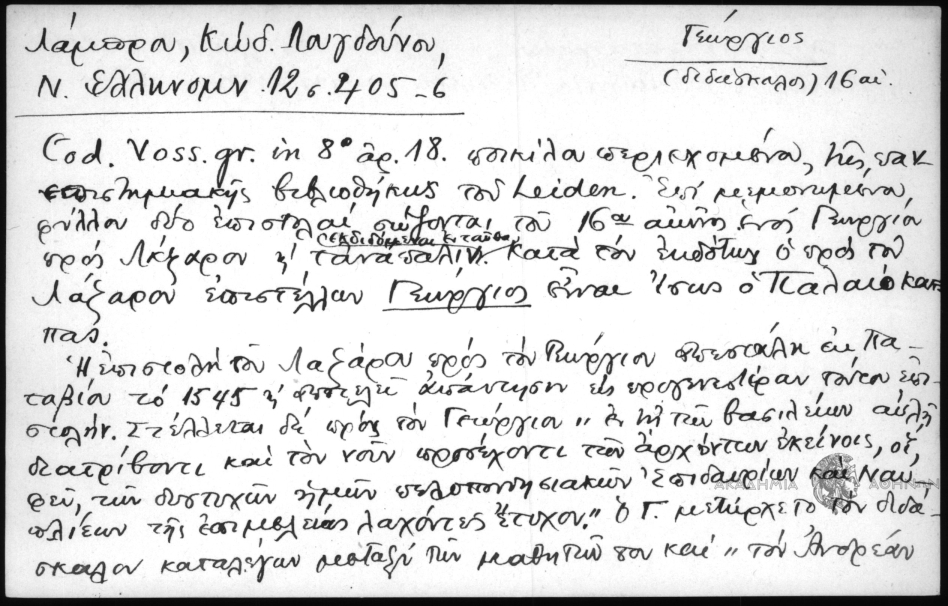 Λάμπρου, Κώδ. Λουγδούνου,
Ν. Ελληνομν. 12 σ. 405-6
Γεώργιος
(διδάσκαλος) 16 αἰ.
Cod. Voss. gr. in 8° ἀρ. 18. ποικίλου περιεχομένου, τῆς παν
επιστημιακῆς βιβλιοθήκης τοῦ Leiden. Ἐπὶ μεμονωμένου
φύλλου δύο ἐπιστολαί σώζονται τοῦ 16ου αἰῶνος ἑνός Γεωργίου
(ἐκδιδόμεναι ἐνταῦθα)
πρός Λάζαρον κ' τἀνάπαλιν. κατά τόν ἐκδότην ὁ πρός τόν
Λάζαρον ἐπιστέλλων Γεώργιος εἶναι ἴσως ὁ Παλαιόκαπ
πας.
Ἡ ἐπιστολή τοῦ Λαζάρου πρός τόν Γεώργιον ἀπεστάλη ἐκ Πα-
ταβίου τό 1545 κ' ἀποτελεῖ ἀπάντησιν εἰς προγενεστέραν τούτου ἐπι
στολήν. Στέλλεται δέ πρός τόν Γεώργιον „ἐν τῇ τῶν βασιλείων αὐλῇ
διατρίβοντι καί τόν νοῦν προσέχοντι τῶν ἀρχόντων ἐκείνοις, οἵ,
φεῦ, τῶν δυστυχῶν ἡμῶν πελοποννησιακῶν Ἐπιδαυρίων καί Ναυ
πλιέων τῆς ἐπιμελείας λαχόντες ἔτυχον." ὁ Γ. μετήρχετο τόν διδά
σκαλον καταλέγων μεταξύ τῶν μαθητῶν του καί „τόν Ἀνδρέαν
ΑΚΑΔΗΜΙΑ ΑΘΗΝΩΝ